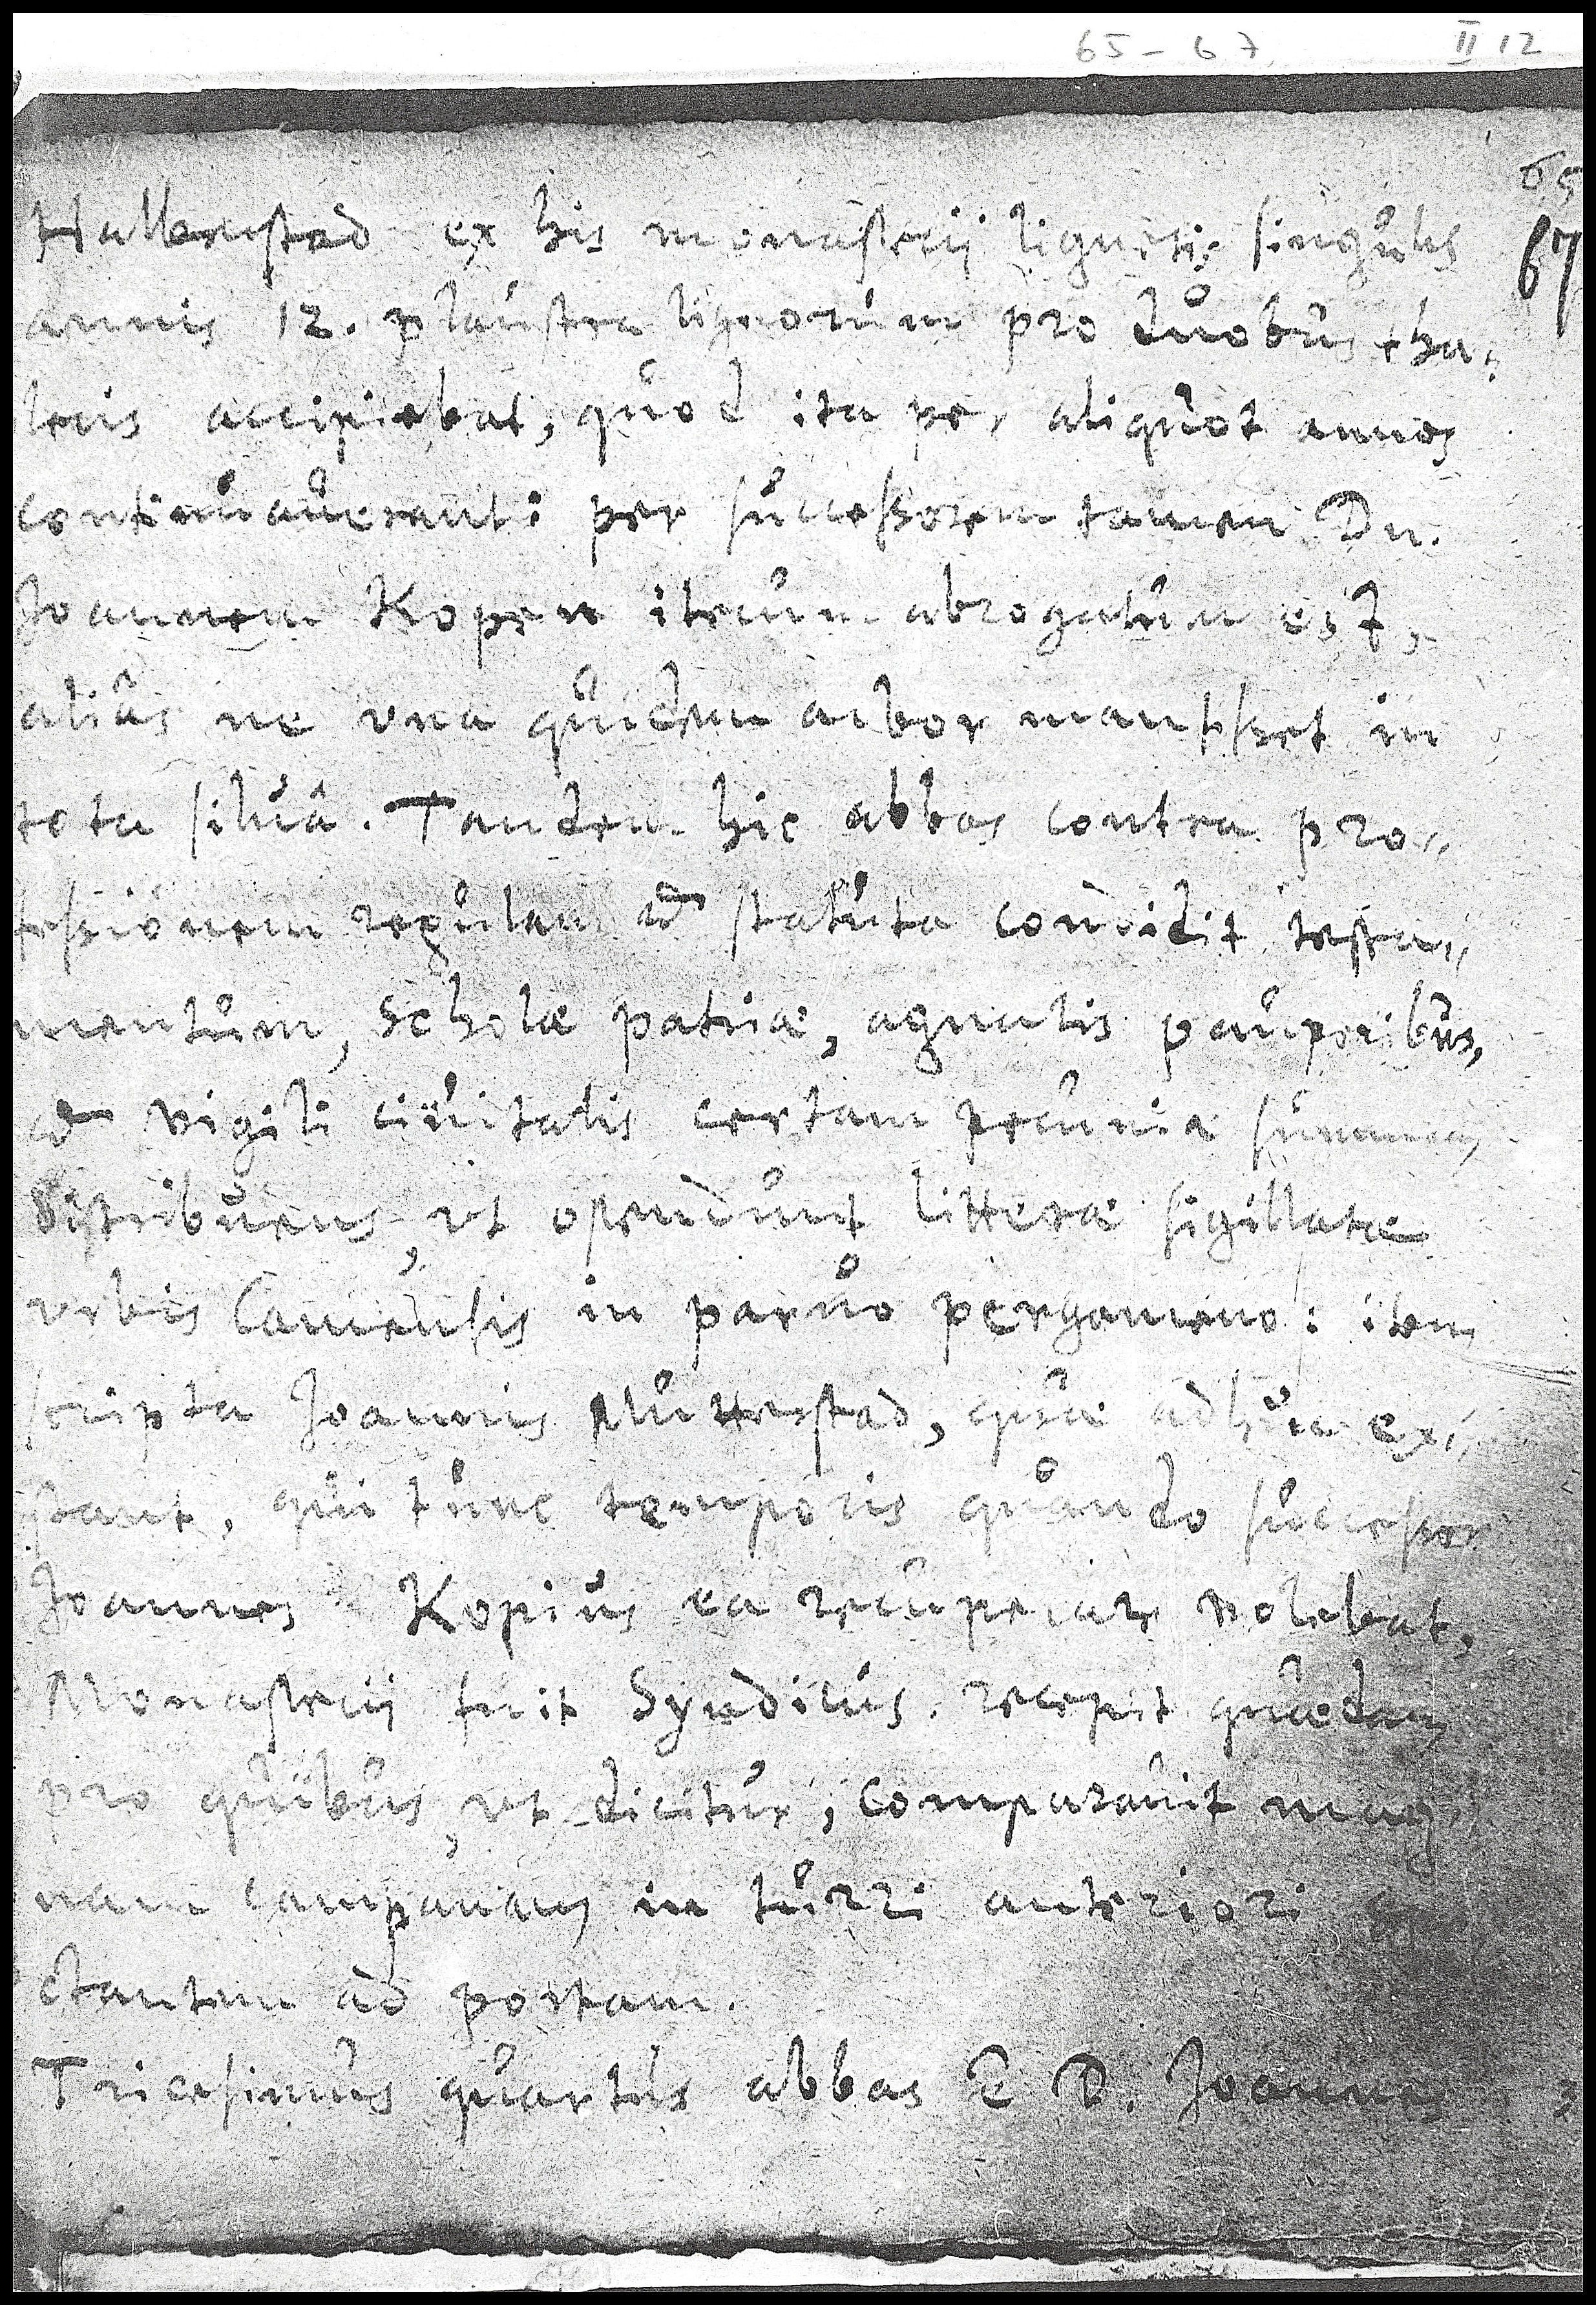 65 - 67 II 12
65
67
Hallenstad ex his monasterij lignis: singulis
annis 12. plaustra lignorum pro duobus tha-
leris accipiebat, quod ita per aliquot annos
continuauerant: per successorem tamen Dn.
Joannem Kopen iterum abrogatum est,
aliâs ne vna quidem arbor mansisset in
tota siluâ. Tandem hic abbas contra pro-
fessionem regulam et statuta condidit testa-
mentum, scholæ patriæ, agnatis pauperibus,
et vigili ciuitatis certam pecuniæ summam
distribuens, vt ostendunt litteræ sigillatæ
vrbis Camensis in paruo pergameno: item
scripta Joannis Mullerstad, quæ adhuc ex-
stant, qui tunc temporis quando successor
Joannes Kopius ea recuperare volebat,
Monasterij fuit Syndicus. recepit quædam
pro quibus, vt dicitur, comparauit mag-
nam campanam in turri anteriori
ctantem ad portam.
Tricesimus quartus abbas E D. Joannes